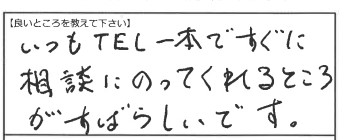 【良いところを教えて下さい】
いつもTEL一本ですぐに
相談にのってくれるところ
がすばらしいです。